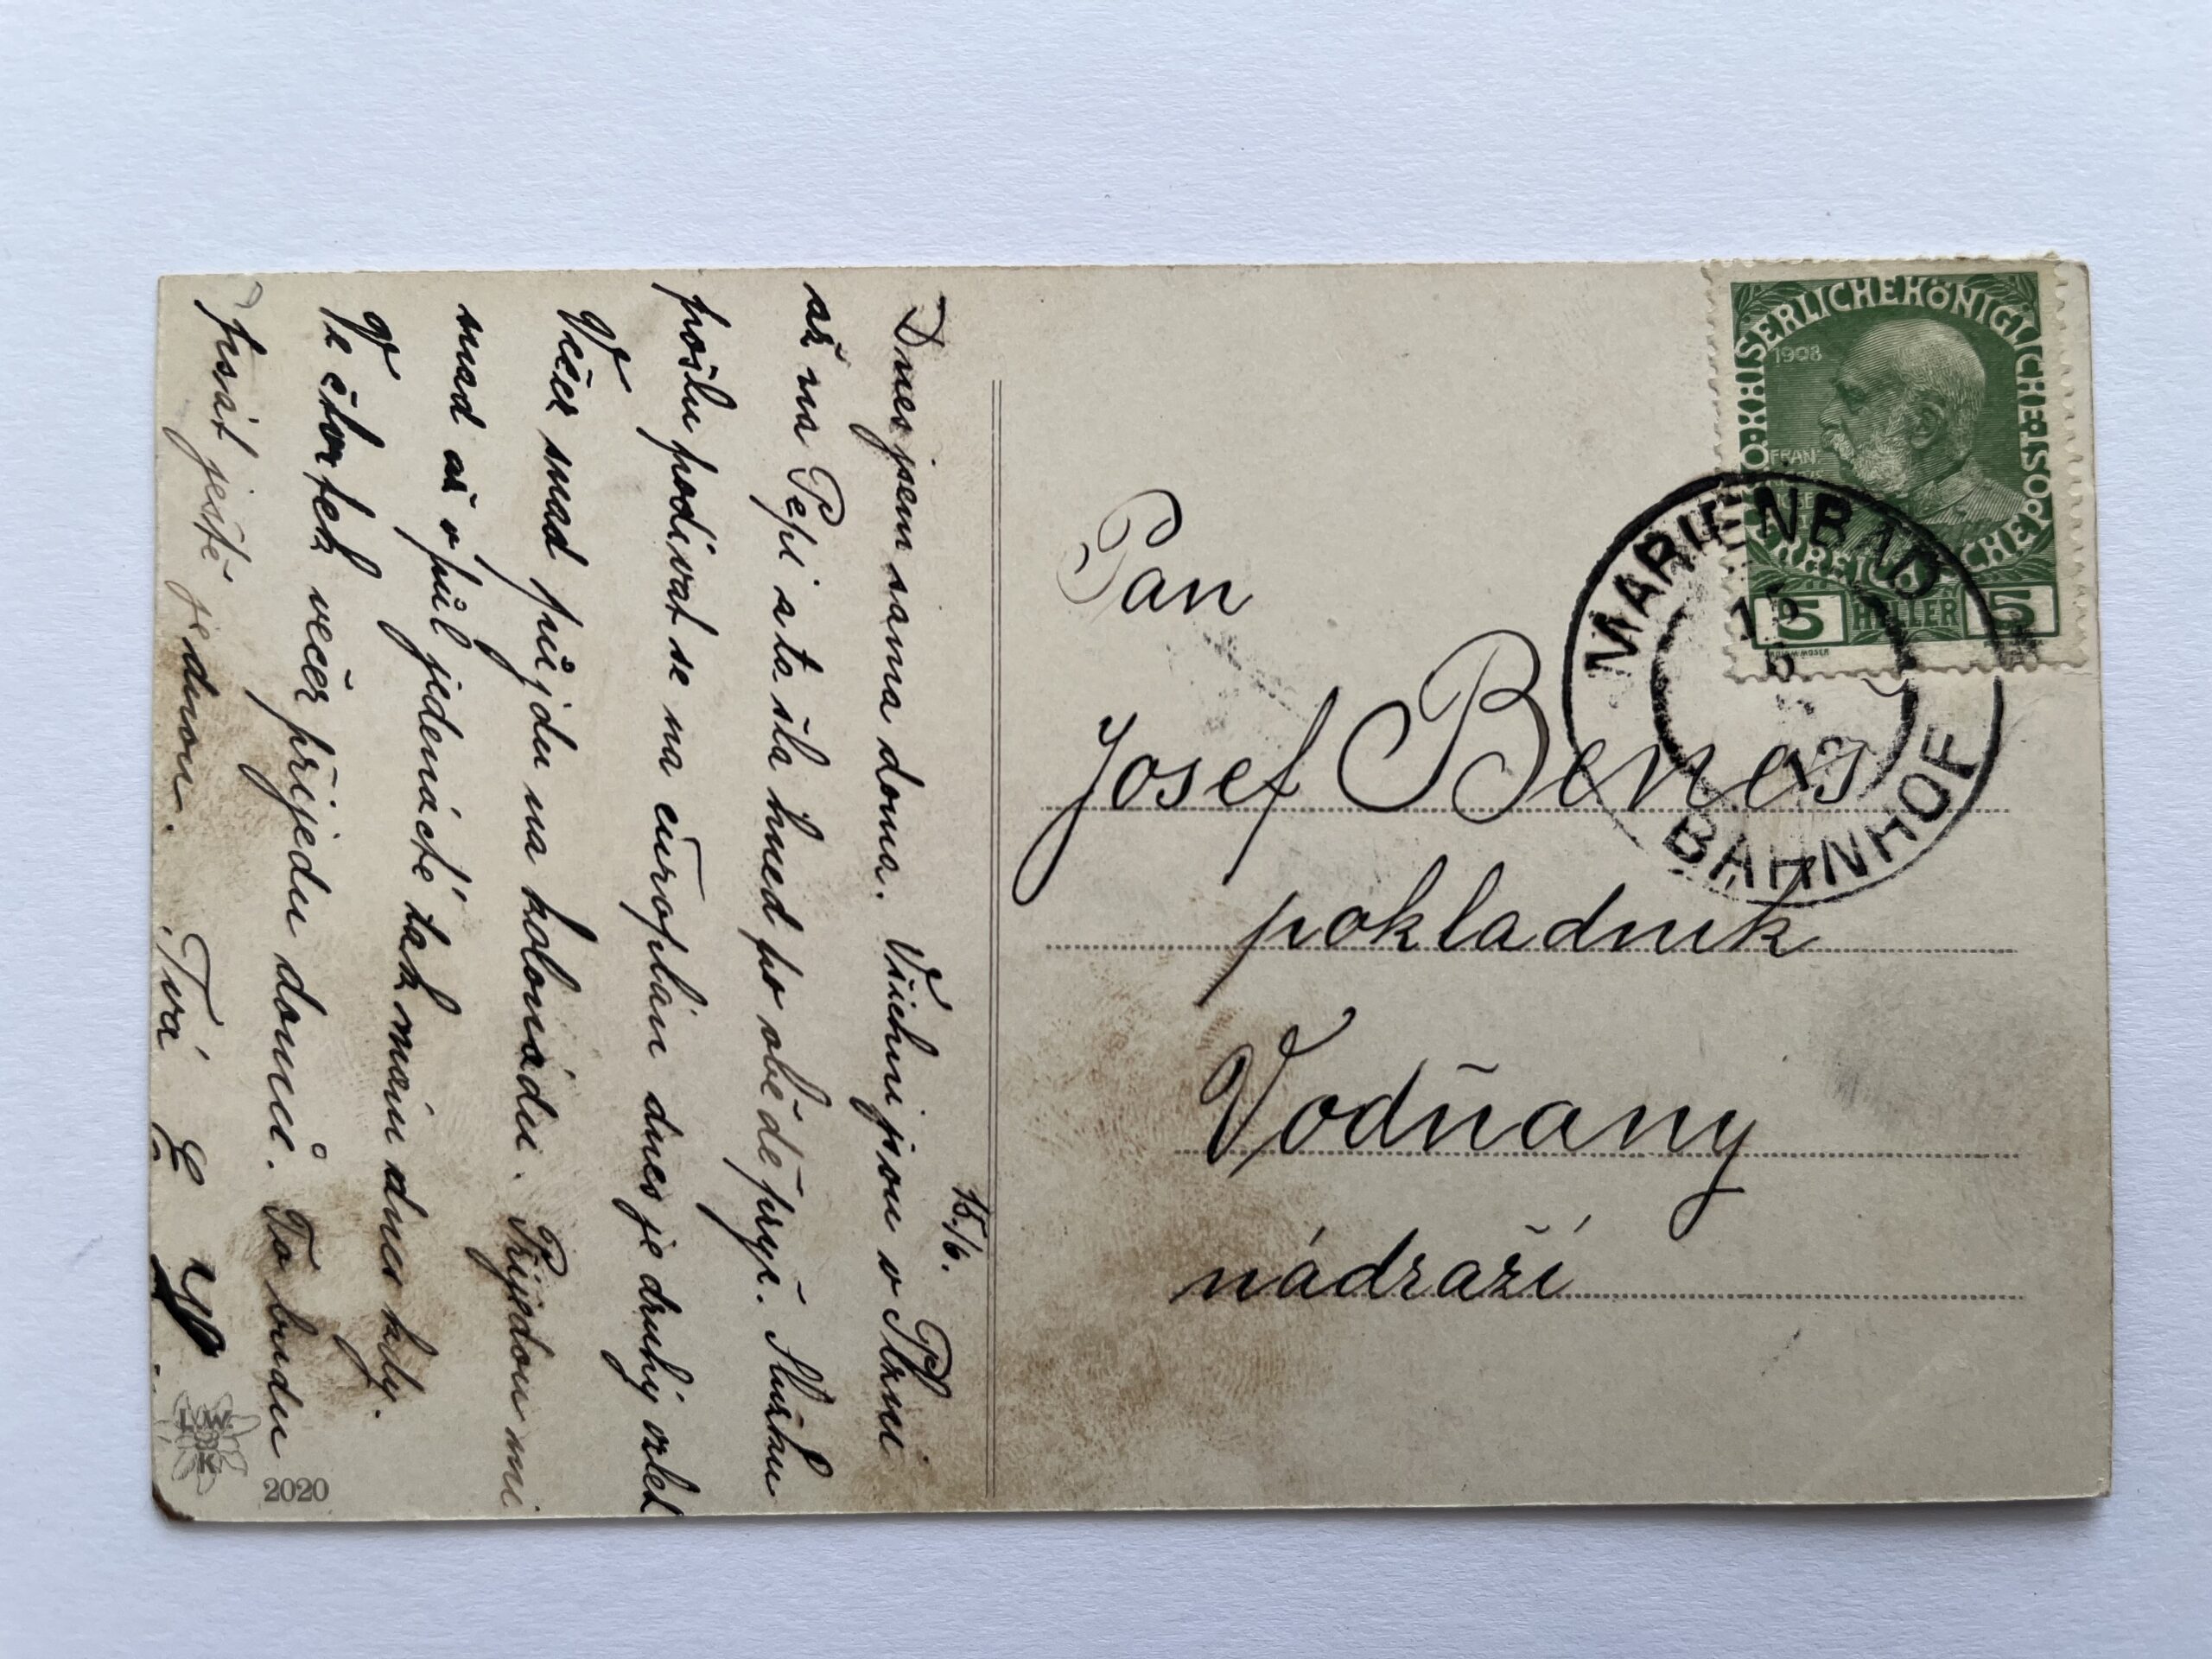 15./6.
Dnes jsem sama doma. Všichni jsou v Plzni
až na Pepi a ta šla hned po obědě pryč.
pošlu podívat se na dnes je druhý vzlet
Večer snad půjdu na kolonádu. Přijedou mi
snad až v půl jedenácté tak mám dnes kdy.
Ve čtvrtek večer přijedu domů. To budu
psát ještě jednou. Tvá
L.W.
&
K.
2020
Pan
Josef Beneš
pokladník
Vodňany
nádraží
KAISERLICHE KÖNIGLICHE ÖSTERREICHISCHE POST
1908
5 HELLER 5
MARIENBAD
15
BAHNHOF